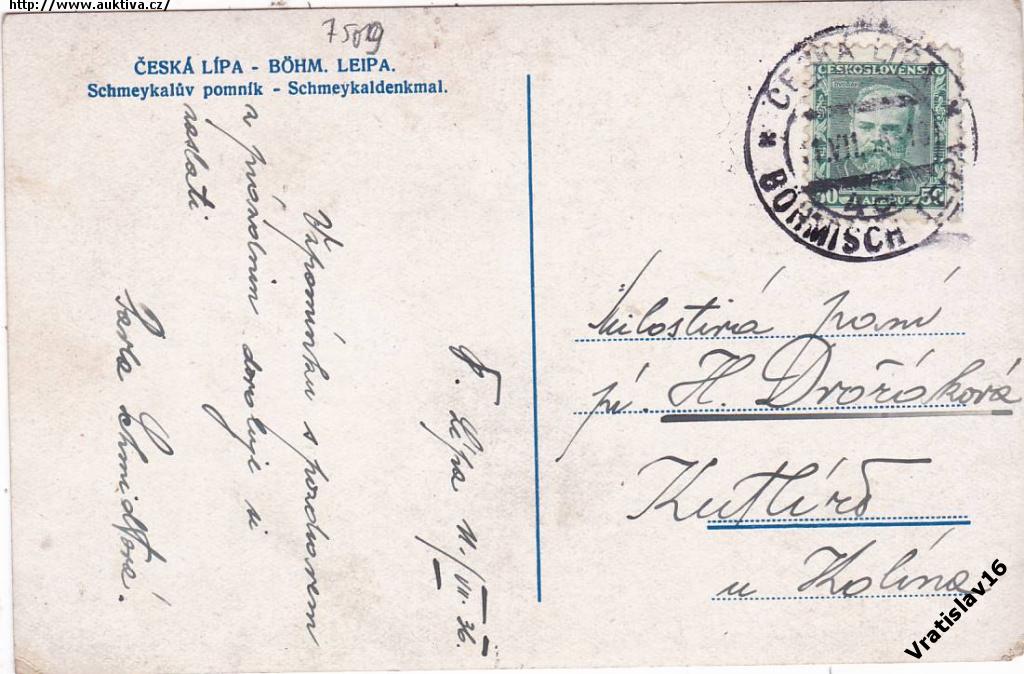 http://www.auktiva.cz/
ČESKÁ LÍPA - BÖHM. LEIPA.
Schmeykalův pomník - Schmeykaldenkmal.
Č. Lípa 11./VII. 36.
Vzpomínku s pozdravem
z prázdnin dovoluje si
zaslati
Schmidtová.
ČESKÁ LÍPA
BÖHMISCH LEIPA
ČESKOSLOVENSKO
50 HALÉŘŮ 50
Milostivá paní
pí. H. Dvořáková
Kutlíře
u Kolína
Vratislav16